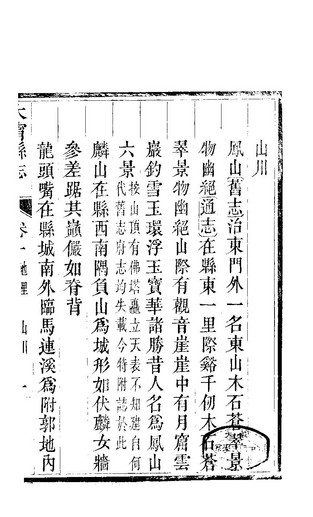 山川
鳳山舊志治東門外一名東山木石蒼翠景
物幽絕通志在縣東一里際谿千仞木石蒼
翠景物幽絕山際有觀音崖崖中有月窟雲
巖釣雪玉環浮玉寶華諸勝昔人名爲鳳山
六景按山頂有佛塔矗立天表不知建自何
代舊志府志均失載今特附誌於此
麟山在縣西南隅負山爲城形如伏麟女牆
參差踞其巔儼如脊背
龍頭嘴在縣城南外臨馬連溪爲附郭地內
大寧縣志
卷一 地理 山川 一